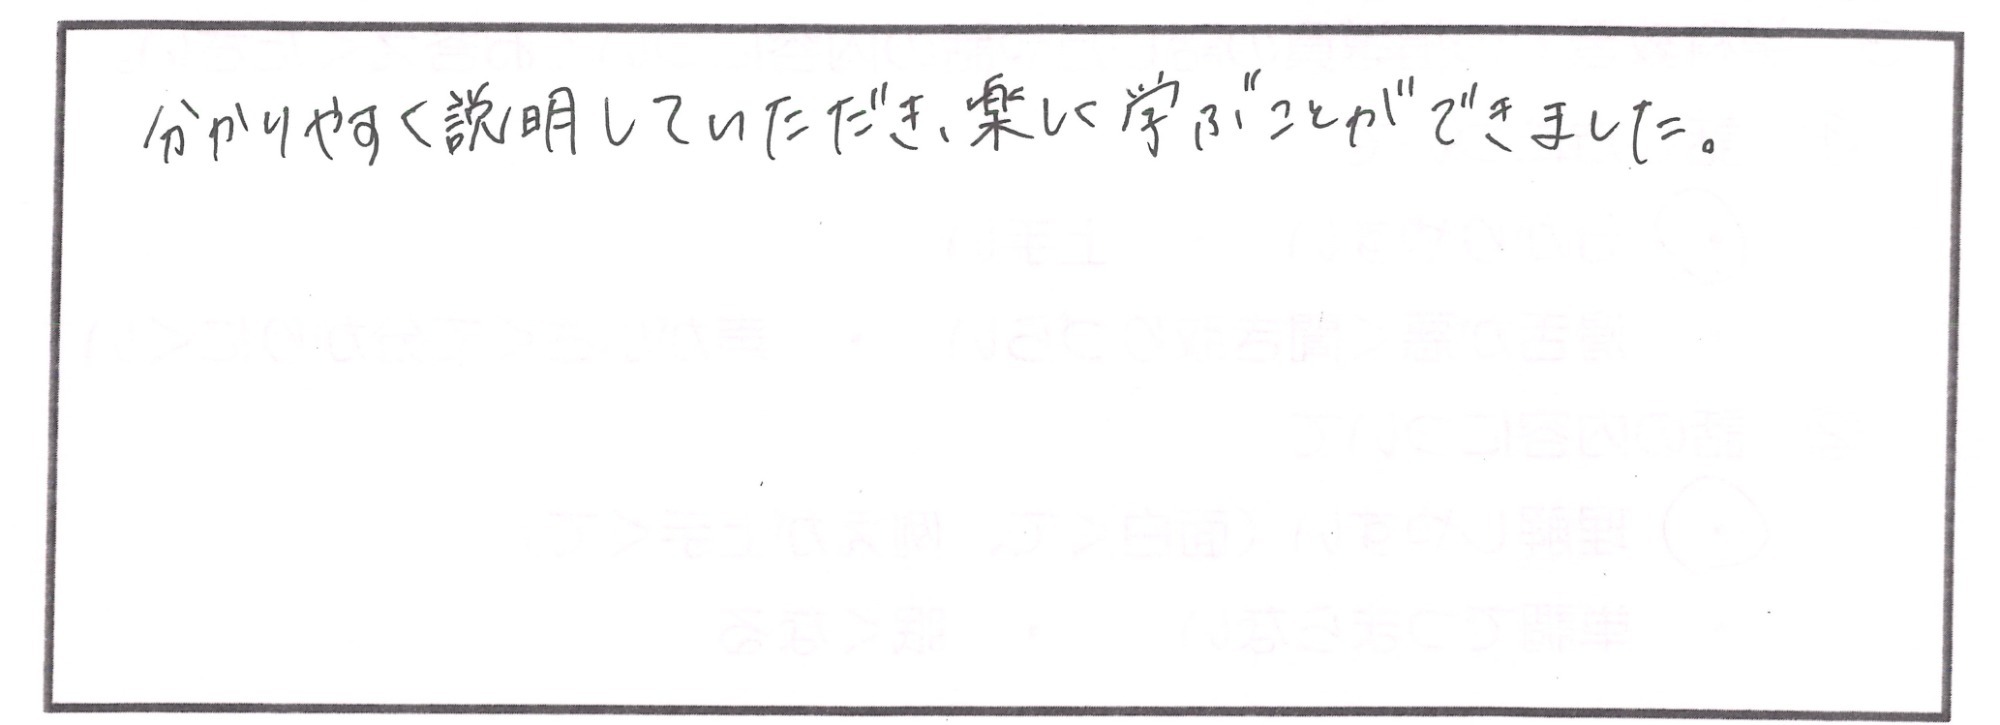 分かりやすく説明していただき、楽しく学ぶことができました。